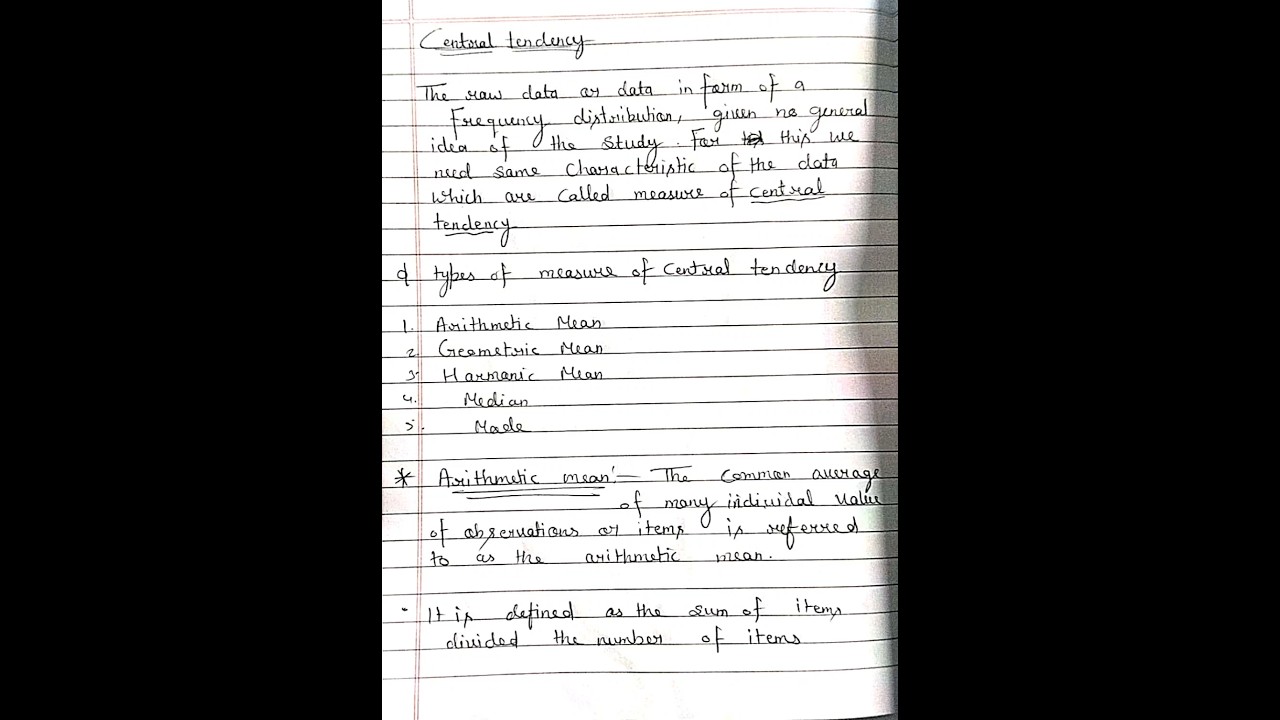 Central tendency
The raw data or data in form of a
Frequency distribution, given no general
idea of the study. For this we
need some characteristic of the data
which are called measure of central
tendency
types of measure of central tendency
1. Arithmetic Mean
2. Geometric Mean
3. Harmonic Mean
4. Median
5. Mode
* Arithmetic mean :- The common average
of many individal value
of observations or items is referred
to as the arithmetic mean.
• It is defined as the sum of items
divided the number of items